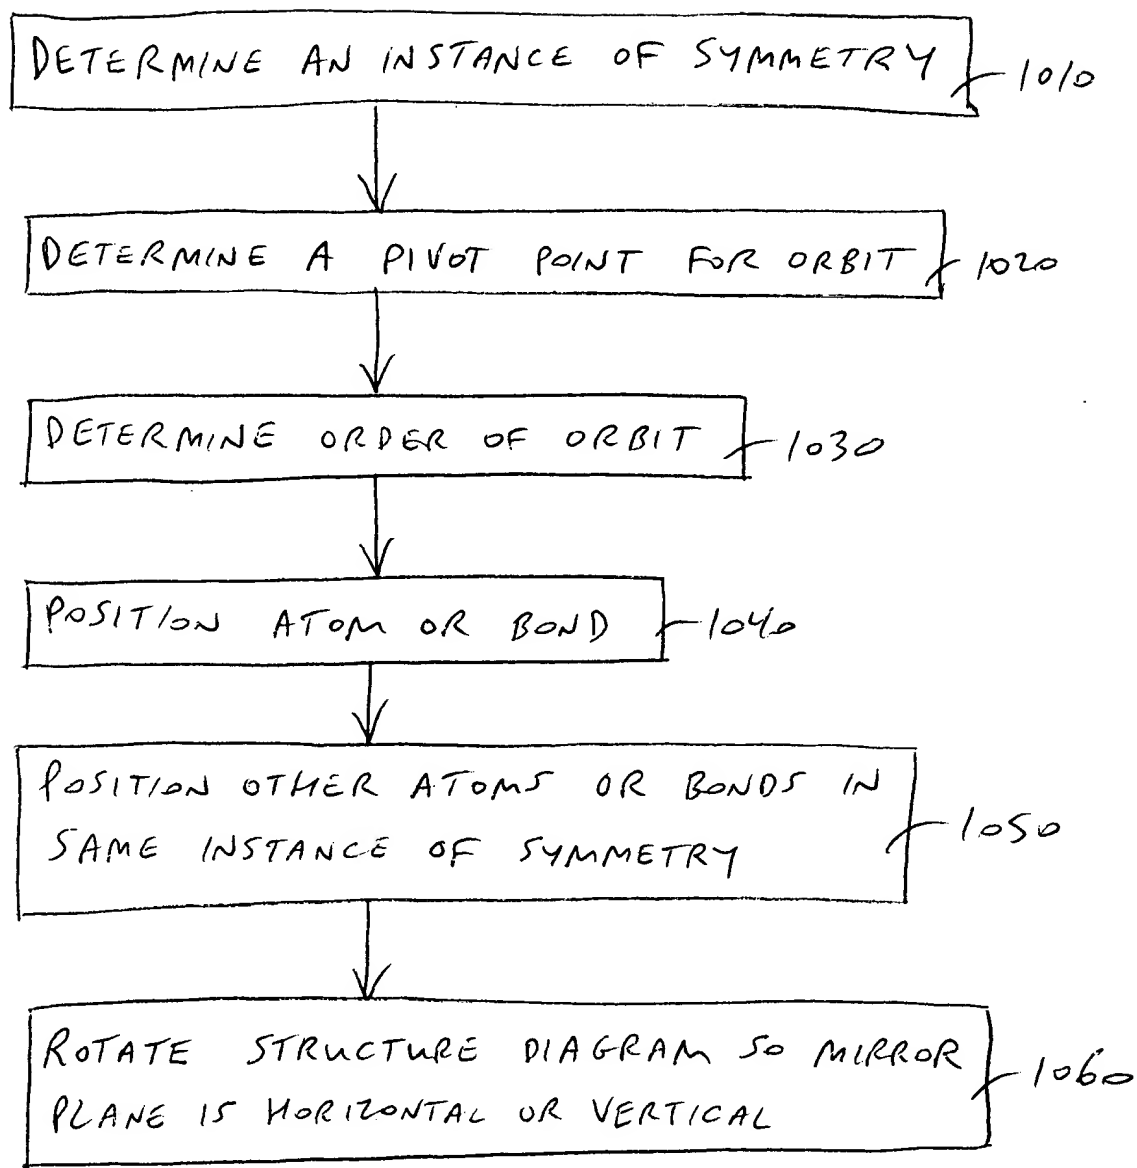 DETERMINE AN INSTANCE OF SYMMETRY 1010
DETERMINE A PIVOT POINT FOR ORBIT 1020
DETERMINE ORDER OF ORBIT 1030
POSITION ATOM OR BOND 1040
POSITION OTHER ATOMS OR BONDS IN
SAME INSTANCE OF SYMMETRY 1050
ROTATE STRUCTURE DIAGRAM SO MIRROR
PLANE IS HORIZONTAL OR VERTICAL 1060